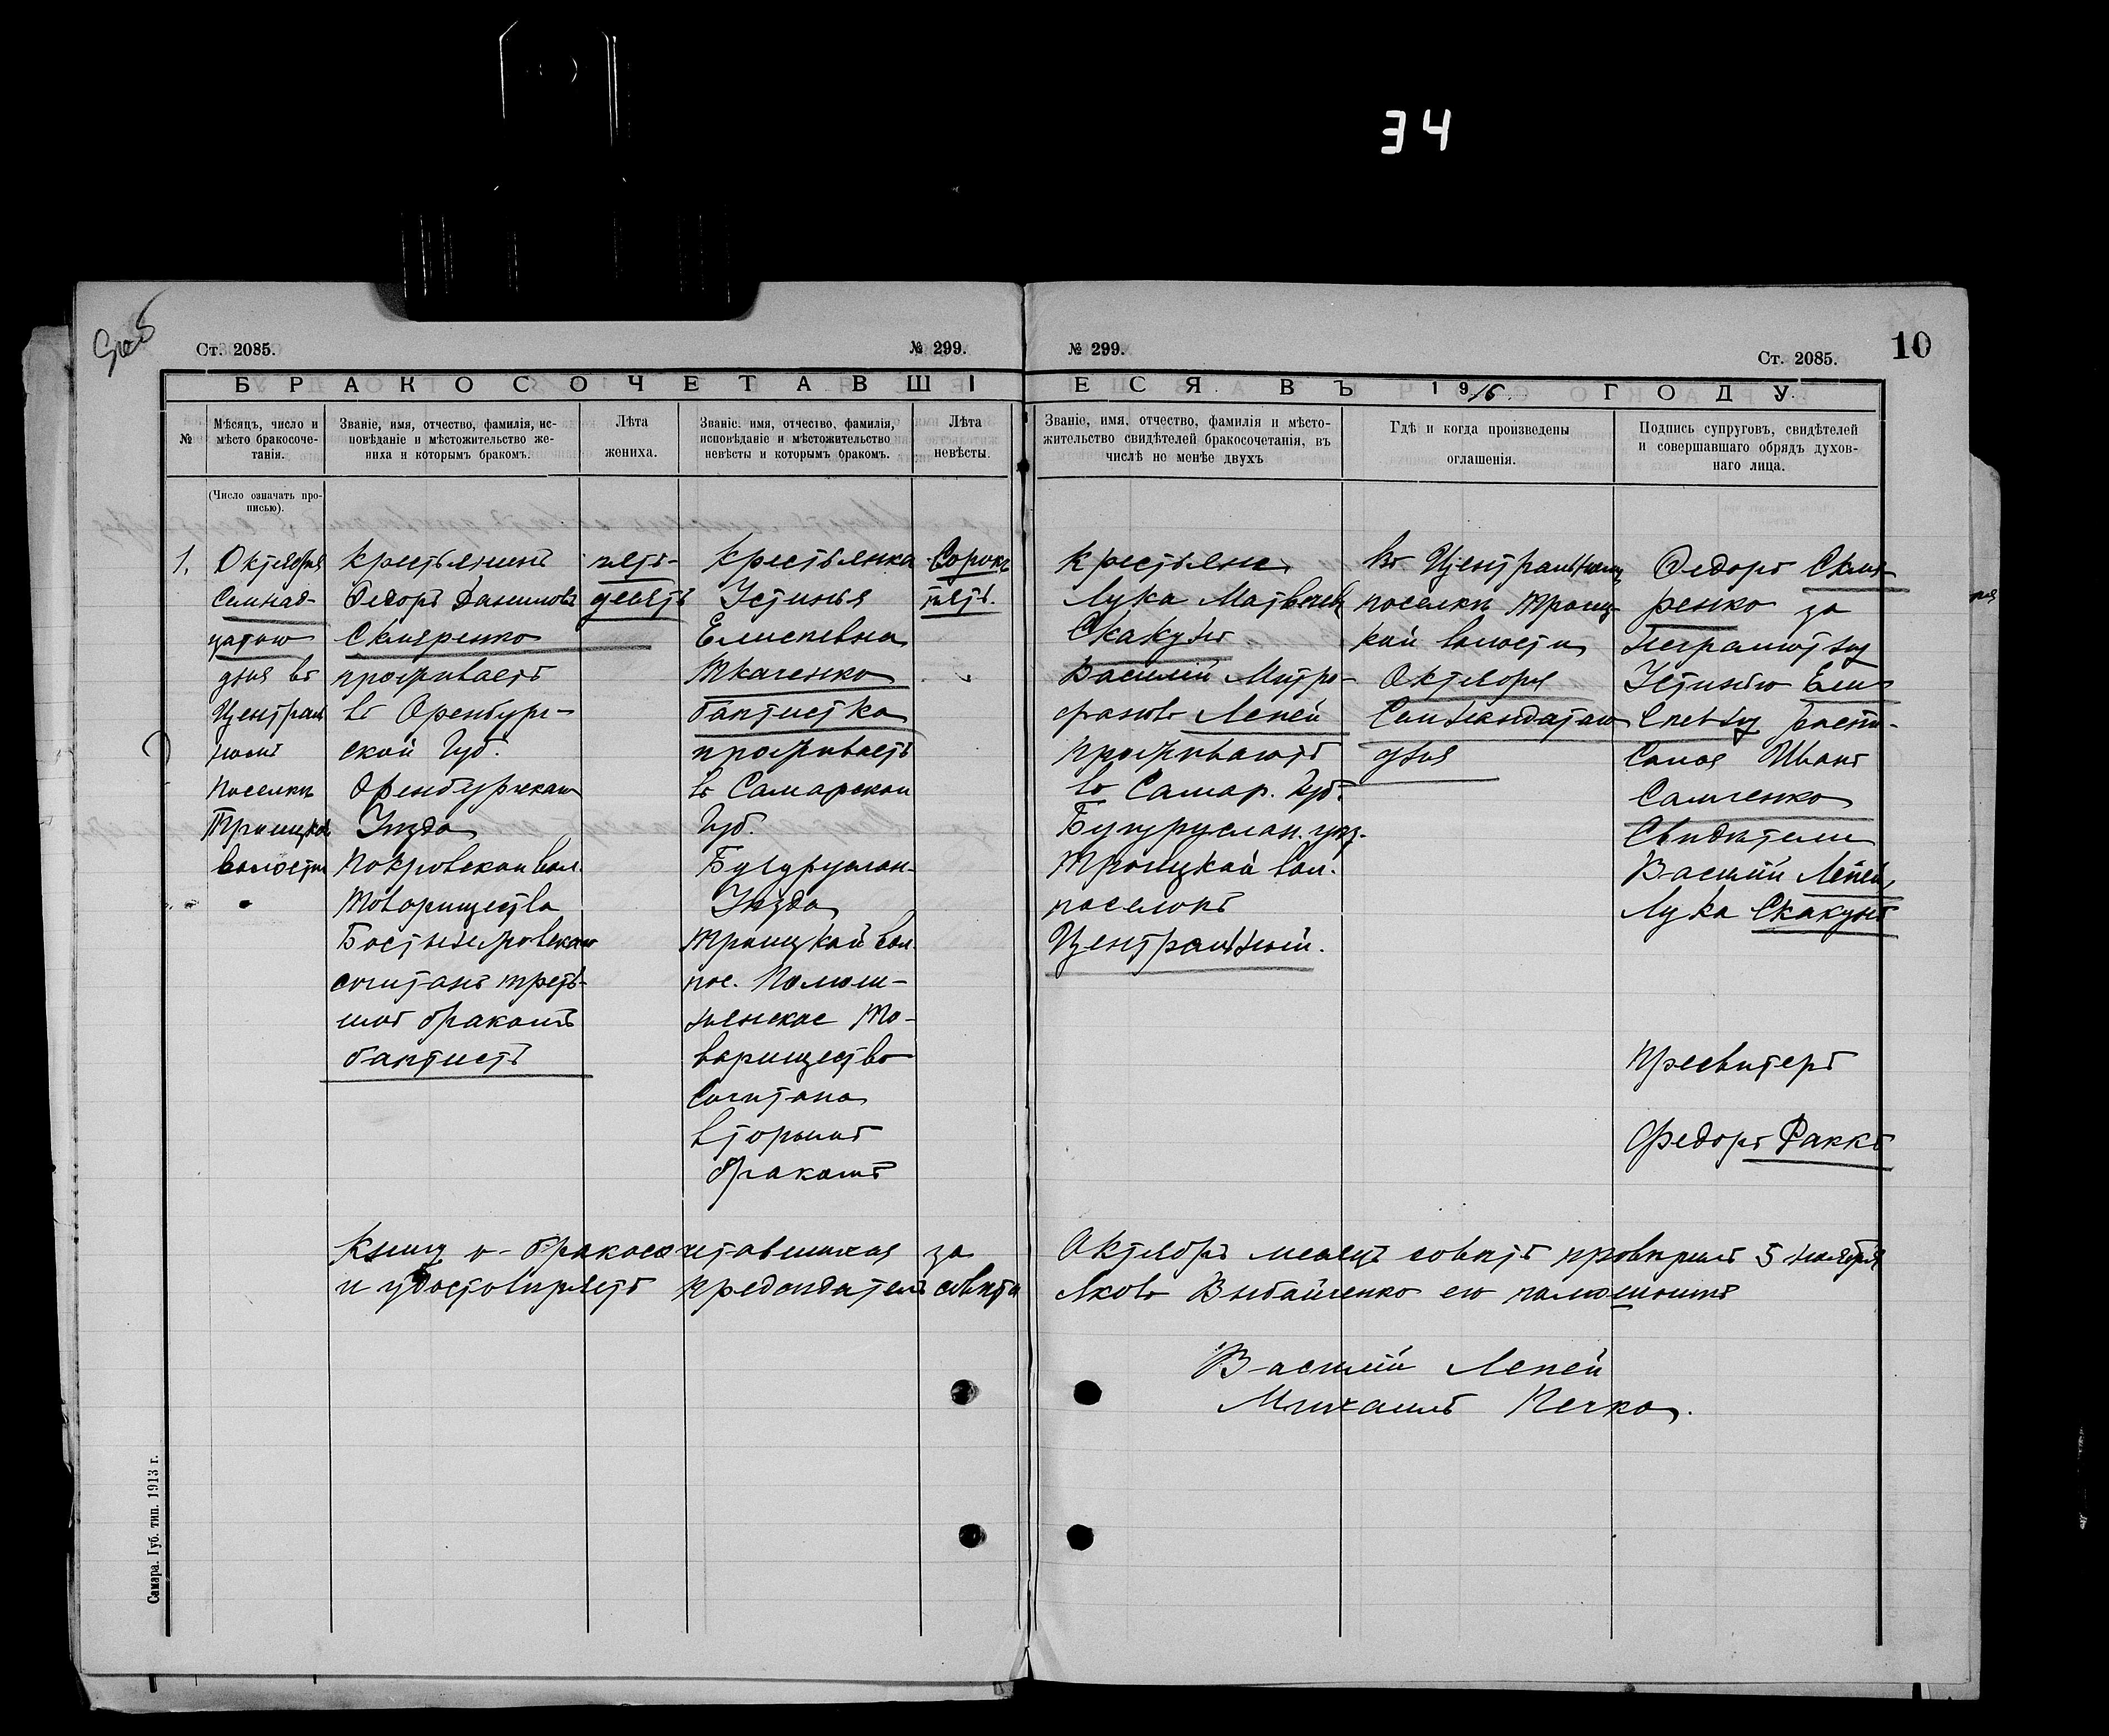 34
Ст. 2085.
№ 299.
№ 299.
Ст. 2085.
10
БРАКОСОЧЕТАВШІ
ЕСЯ ВЪ 1916 ГОДУ.
№
Мѣсяцъ, число и
мѣсто бракосоче-
танія.
Званіе, имя, отчество, фамилія, ис-
повѣданіе и мѣстожительство же-
ниха и которымъ бракомъ.
Лѣта
жениха.
Званіе, имя, отчество, фамилія,
исповѣданіе и мѣстожительство
невѣсты и которымъ бракомъ.
Лѣта
невѣсты.
Званіе, имя, отчество, фамилія и мѣсто-
жительство свидѣтелей бракосочетанія, въ
числѣ не менѣе двухъ
Гдѣ и когда произведены
оглашенія.
Подпись супруговъ, свидѣтелей
и совершавшаго обрядъ духов-
наго лица.
(Число означать про-
писью).
1.
Октября
Семнад-
цатаго
дня въ
Централь
номъ
поселкѣ
Троицкой
волости
Крестьянинъ
Федоръ Даниловъ
Скляренко
проживаетъ
въ Оренбург-
ской Губ.
Оренбургскаго
Уѣзда
Покровской вол.
Товарищества
считанъ треть-
имъ бракомъ
баптистъ
пять-
десятъ
Крестьянка
Устинья
Елисѣевна
Ткаченко
баптистка
проживаетъ
въ Самарской
Губ.
Бугуруслан-
Уѣзда
Троицкой вол.
пос.
То-
варищество
Считана
вторымъ
бракомъ
Сорокъ
пять.
Крестьяне
Лука Матвѣевъ
Скакунъ
Василій Митро-
фановъ Лепей
проживаютъ
въ Самар. Губ.
Бугуруслан. уѣз.
Троицкой вол.
поселокъ
Центральный.
Въ Центральномъ
поселкѣ Троиц-
кой волости
Октября
Семнандатаго
дня
Федоръ Скля-
ренко за
неграмотну
Устинью Ели-
сѣевну роспи-
сался Иванъ
Самченко
Свидѣтели
Василій Лепей
Лука Скакунъ
Пресвитеръ
Федоръ Факкъ
Книгу о бракосочетавшихся за
Октябрь мѣсяцъ совѣтъ провѣрилъ 5 ноября
и удостовѣряетъ предсѣдатель совѣта
Яковъ его
Василій Лепей
Михаилъ Печка.
Самара. Губ. тип. 1913 г.